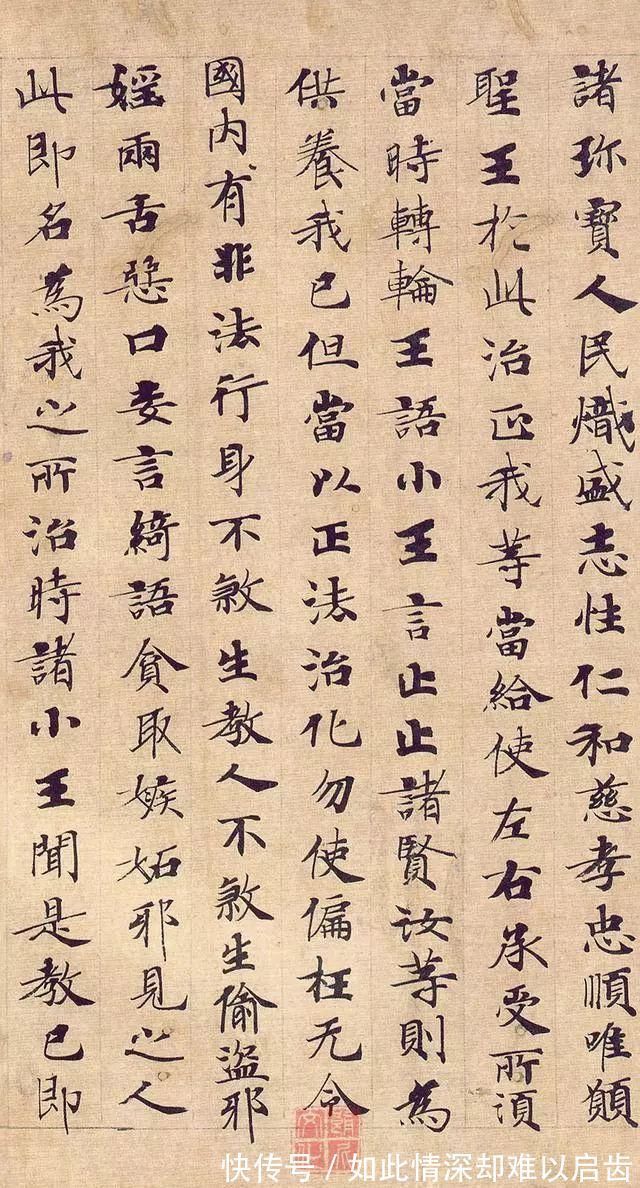 諸珎寳人民熾盛志性仁和慈孝忠順唯願
聖王於此治正我等當給使左右承受所湏
當時轉輪王語小王言止止諸賢汝等則為
供養我已但當以正法治化勿使偏枉无令
國內有非法行身不煞生教人不煞生偷盜邪
婬兩舌惡口妄言綺語貪取嫉妬邪見之人
此即名為我之所治時諸小王聞是教已即
快传号 / 如此情深却难以启齿